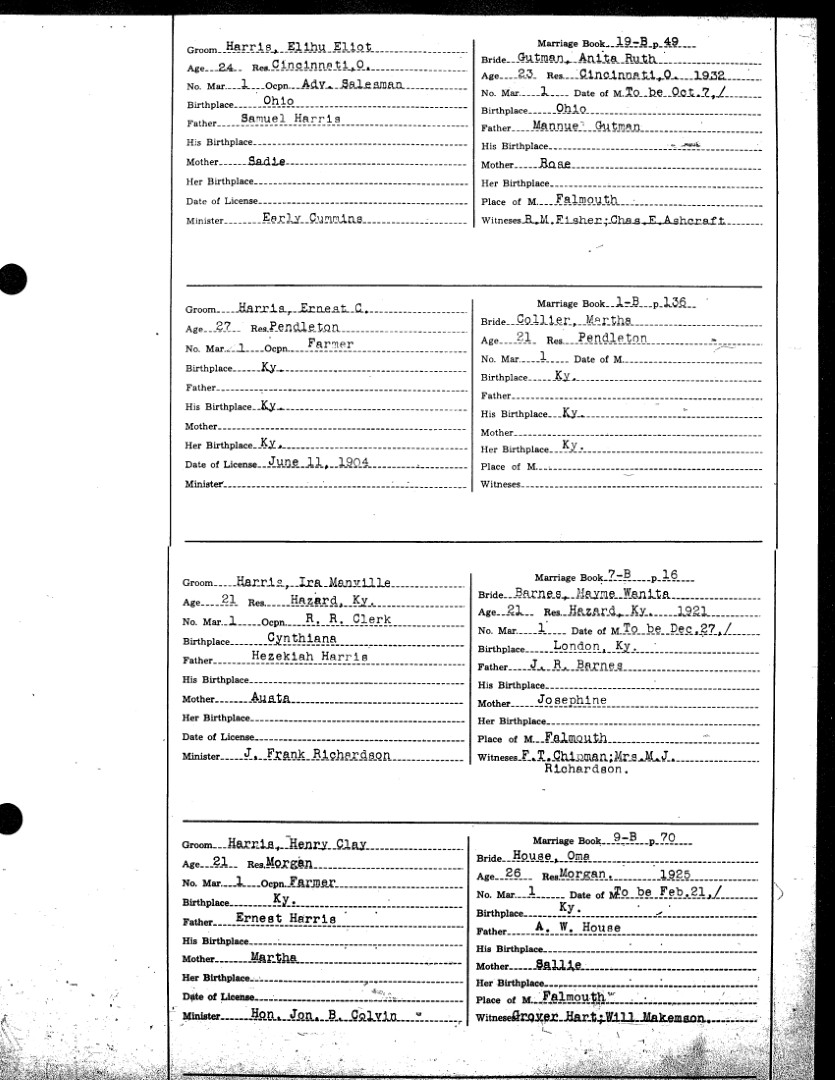 Groom Harris, Elihu Eliot
Age 24 Res. Cincinnati,O.
No. Mar. 1 Ocpn. Adv. Salesman
Birthplace Ohio
Father Samuel Harris
His Birthplace
Mother Sadie
Her Birthplace
Date of License
Minister Early Cummins
Marriage Book 19-B p. 49
Bride Gutman, Anita Ruth
Age 23 Res. Cincinnati,O. 1932
No. Mar. 1 Date of M. To be Oct.7,/
Birthplace Ohio
Father Mannue Gutman
His Birthplace
Mother Rose
Her Birthplace
Place of M. Falmouth
Witnesses R.M.Fisher;Chas.E.Ashcraft
Groom Harris, Ernest C.
Age 27 Res. Pendleton
No. Mar. 1 Ocpn. Farmer
Birthplace Ky.
Father
His Birthplace Ky.
Mother
Her Birthplace Ky.
Date of License June 11, 1904
Minister
Marriage Book 1-B p. 136
Bride Collier, Martha
Age 21 Res. Pendleton
No. Mar. 1 Date of M.
Birthplace Ky.
Father
His Birthplace Ky.
Mother
Her Birthplace Ky.
Place of M.
Witnesses
Groom Harris, Ira Manville
Age 21 Res. Hazard, Ky.
No. Mar. 1 Ocpn. R. R. Clerk
Birthplace Cynthiana
Father Hezekiah Harris
His Birthplace
Mother Austa
Her Birthplace
Date of License
Minister J. Frank Richardson
Marriage Book 7-B p. 16
Bride Barnes, Mayme Wanita
Age 21 Res. Hazard, Ky. 1921
No. Mar. 1 Date of M. To be Dec.27,/
Birthplace London, Ky.
Father J. R. Barnes
His Birthplace
Mother Josephine
Her Birthplace
Place of M. Falmouth
Witnesses F.T.Chipman;Mrs.M.J.
Richardson.
Groom Harris, Henry Clay
Age 21 Res. Morgan
No. Mar. 1 Ocpn. Farmer
Birthplace Ky.
Father Ernest Harris
His Birthplace
Mother Martha
Her Birthplace
Date of License
Minister Hon. Jon. B. Colvin
Marriage Book 9-B p. 70
Bride House, Oma
Age 26 Res. Morgan. 1925
No. Mar. 1 Date of M. To be Feb.21,/
Birthplace Ky.
Father A. W. House
His Birthplace
Mother Sallie
Her Birthplace
Place of M. Falmouth
Witnesses Grover Hart;Will Makemson.